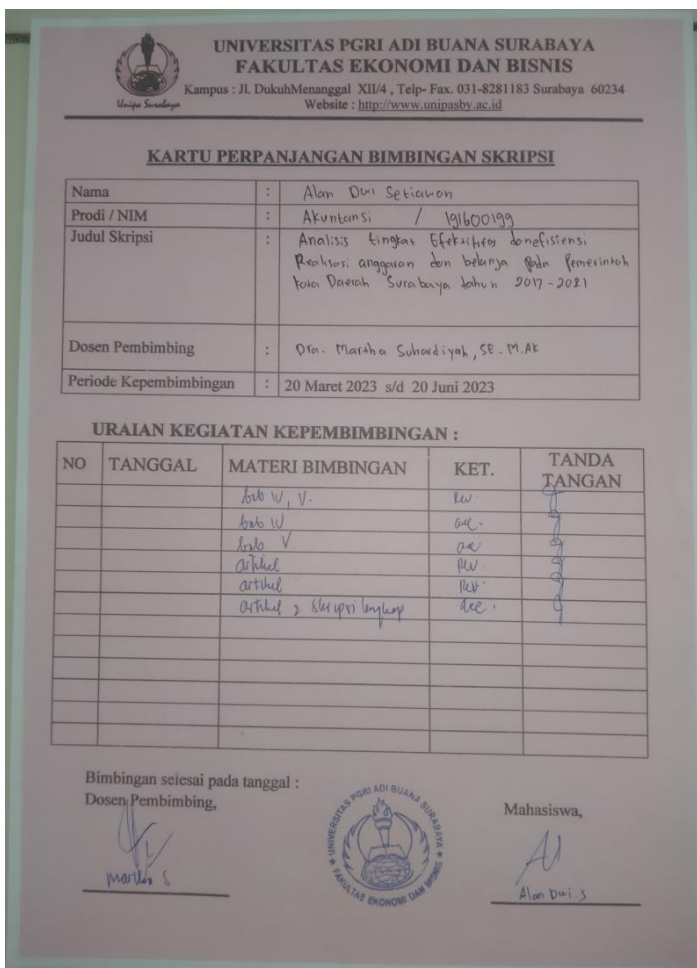 UNIVERSITAS PGRI ADI BUANA SURABAYA
FAKULTAS EKONOMI DAN BISNIS
Kampus : Jl. DukuhMenanggal XII/4 , Telp- Fax. 031-8281183 Surabaya 60234
Website : http://www.unipasby.ac.id
Unipa Surabaya
KARTU PERPANJANGAN BIMBINGAN SKRIPSI
Nama : Alan Dwi Setiawan
Prodi / NIM : Akuntansi / 191600199
Judul Skripsi : Analisis tingkat Efektifitas danefisiensi
Realisasi anggaran dan belanja pada Pemerintah
kota Daerah Surabaya tahun 2017-2021
Dosen Pembimbing : Dra. Martha Suhardiyah, SE. M.AK
Periode Kepembimbingan : 20 Maret 2023 s/d 20 Juni 2023
URAIAN KEGIATAN KEPEMBIMBINGAN :
NO TANGGAL MATERI BIMBINGAN KET. TANDA TANGAN
bab IV, V. Rev.
bab IV acc.
bab V acc
artikel Rev.
artikel Rev.
artikel & Skripsi lengkap acc.
Bimbingan selesai pada tanggal :
Dosen Pembimbing,
Mahasiswa,
UNIVERSITAS PGRI ADI BUANA SURABAYA
FAKULTAS EKONOMI DAN BISNIS
Martha S
Alan Dwi.S